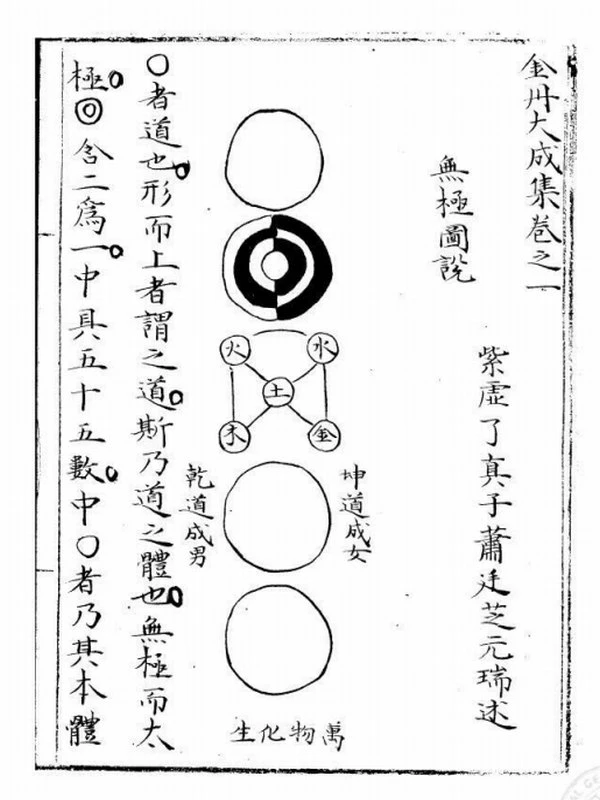 金丹大成集卷之一
紫虛了真子蕭廷芝元瑞述
無極圖說
水
火
土
金
木
坤道成女
乾道成男
萬物化生
〇者道也形而上者謂之道斯乃道之體也無極而太
極◎含二爲一中具五十五數中〇者乃其本體